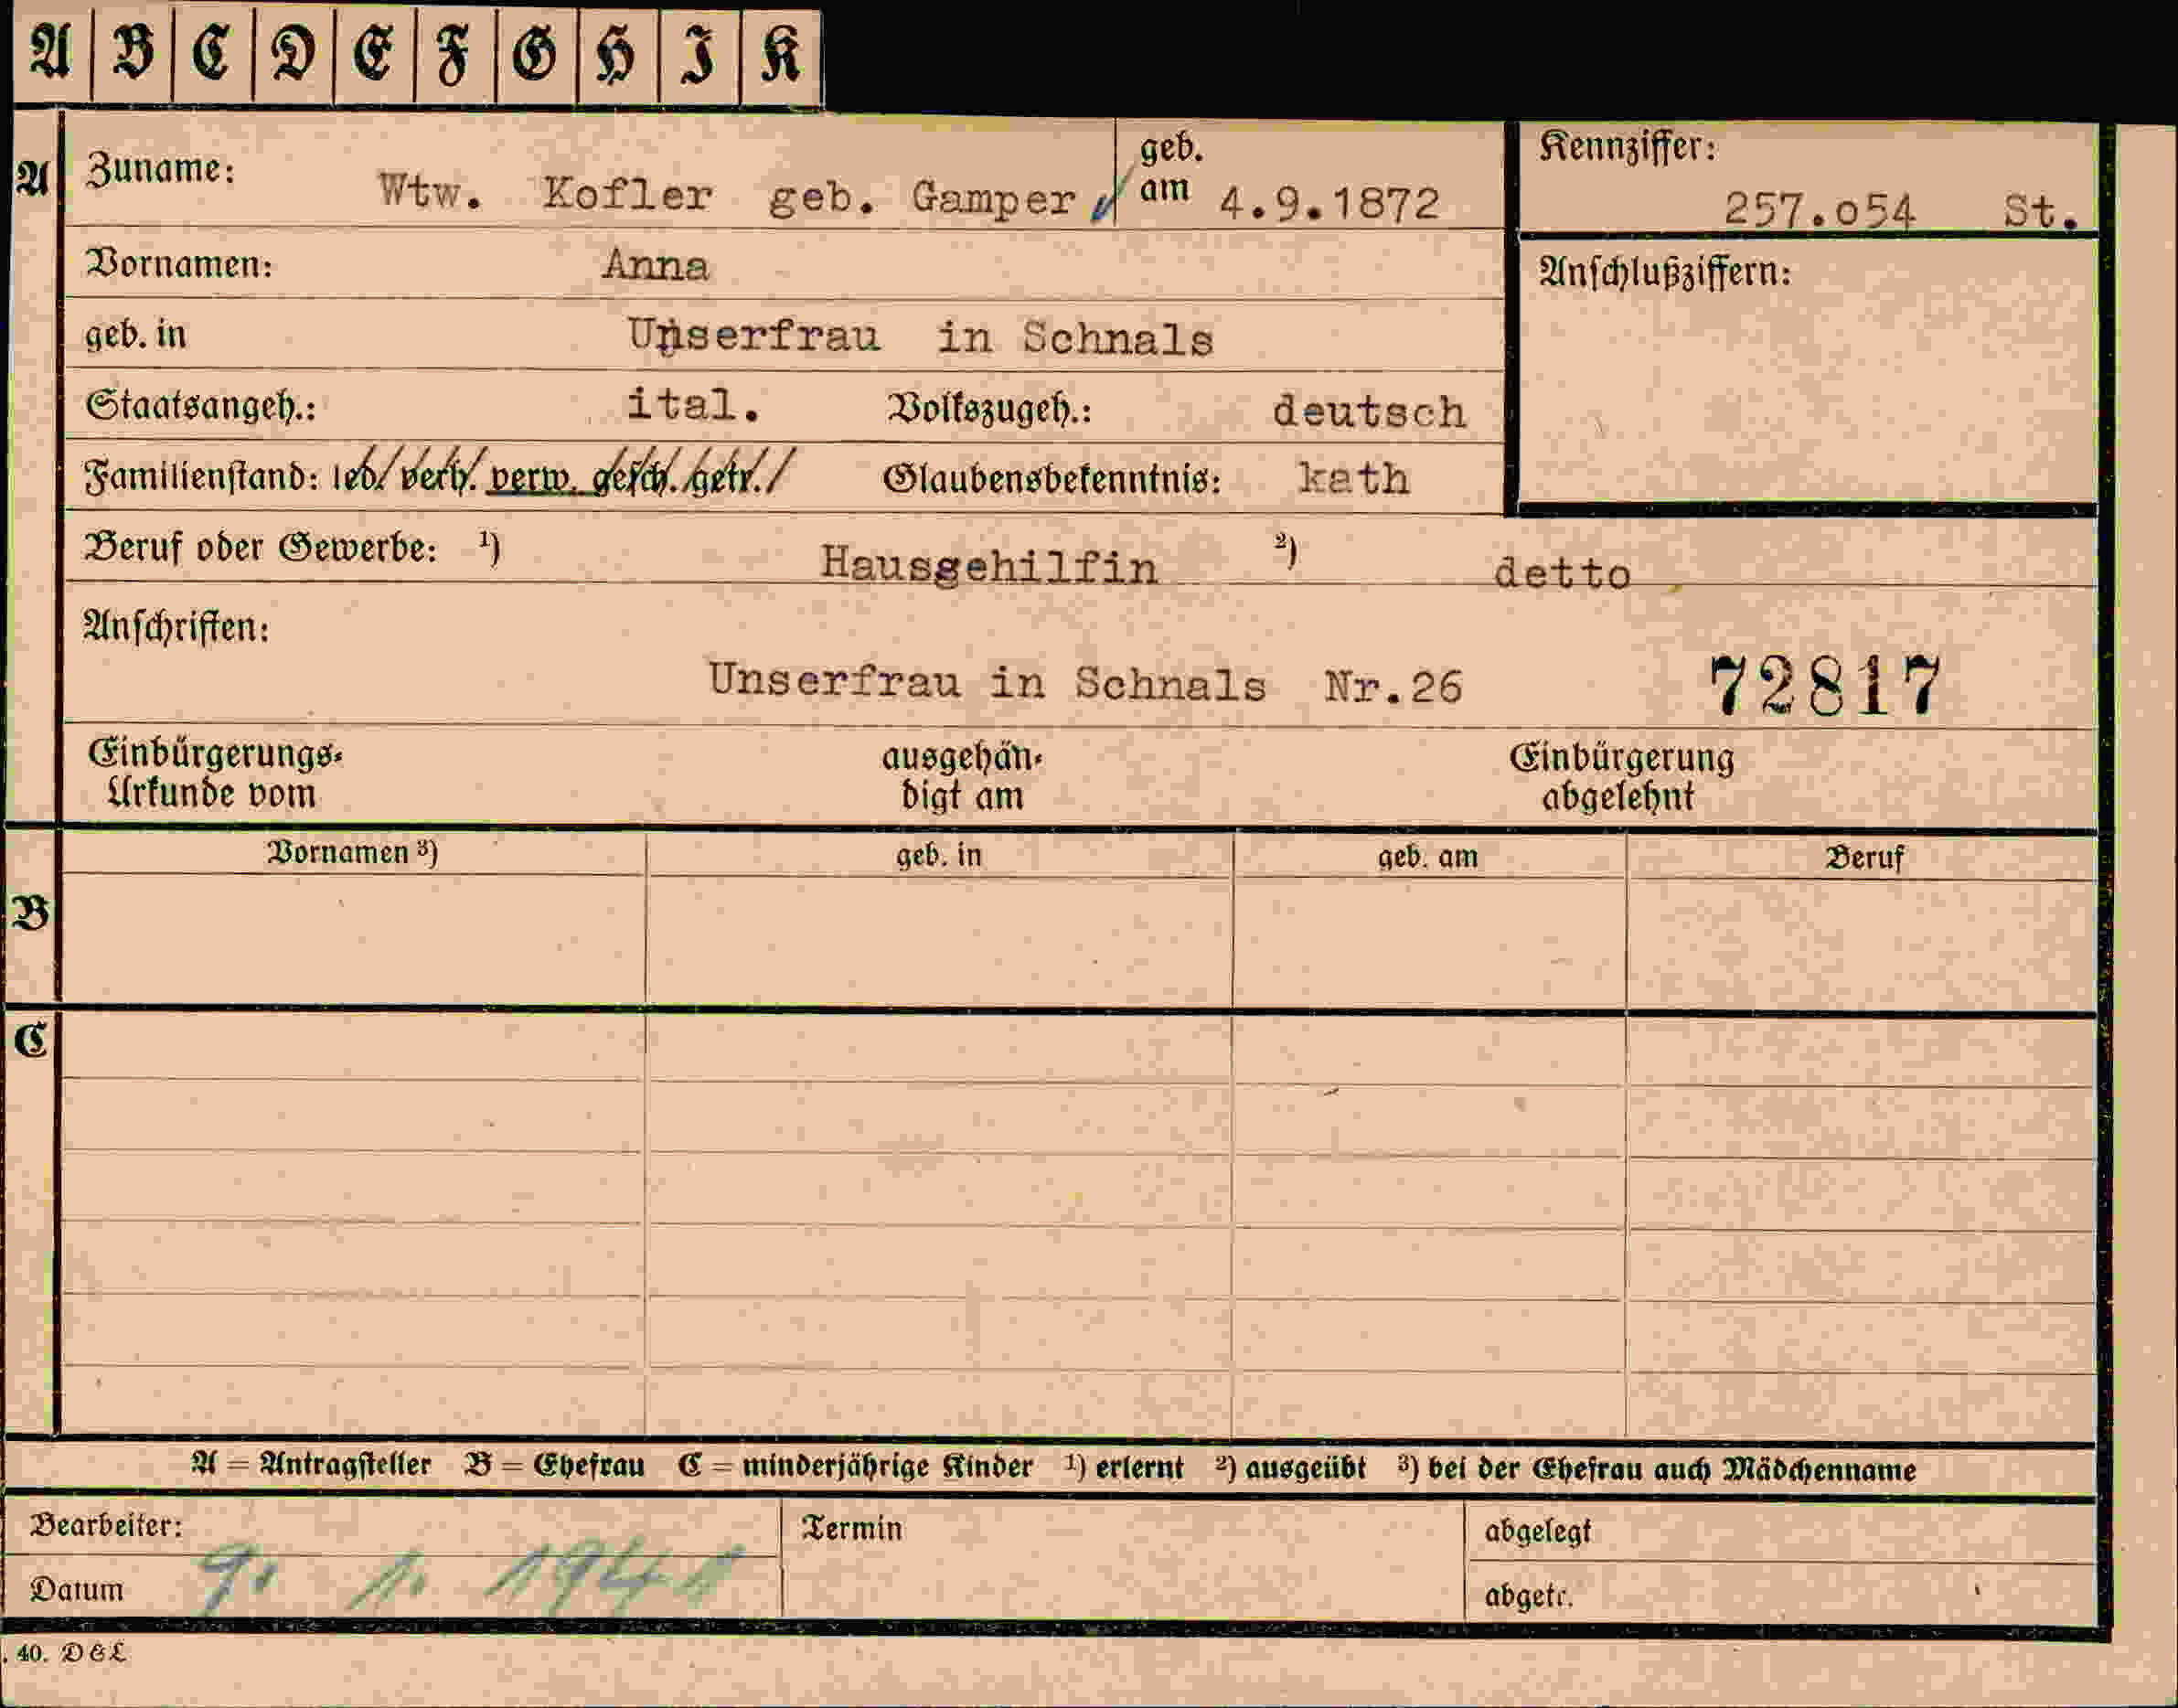 A B C D E F G H I K
A
Zuname: Wtw. Kofler geb. Gamper geb. am 4.9.1872
Kennziffer: 257.o54 St.
Vornamen: Anna
Anschlußziffern:
geb. in Unserfrau in Schnals
Staatsangeh.: ital. Volkszugeh.: deutsch
Familienstand: led. verh. verw. gesch. getr. Glaubensbekenntnis: kath
Beruf oder Gewerbe: ¹) Hausgehilfin ²) detto
Anschriften:
Unserfrau in Schnals Nr.26 72817
Einbürgerungs- ausgehän- Einbürgerung
Urkunde vom digt am abgelehnt
Vornamen ³) geb. in geb. am Beruf
B
C
A = Antragsteller B = Ehefrau C = minderjährige Kinder ¹) erlernt ²) ausgeübt ³) bei der Ehefrau auch Mädchenname
Bearbeiter: Termin abgelegt
Datum 9. 1. 1941 abgetr.
. 40. D&L